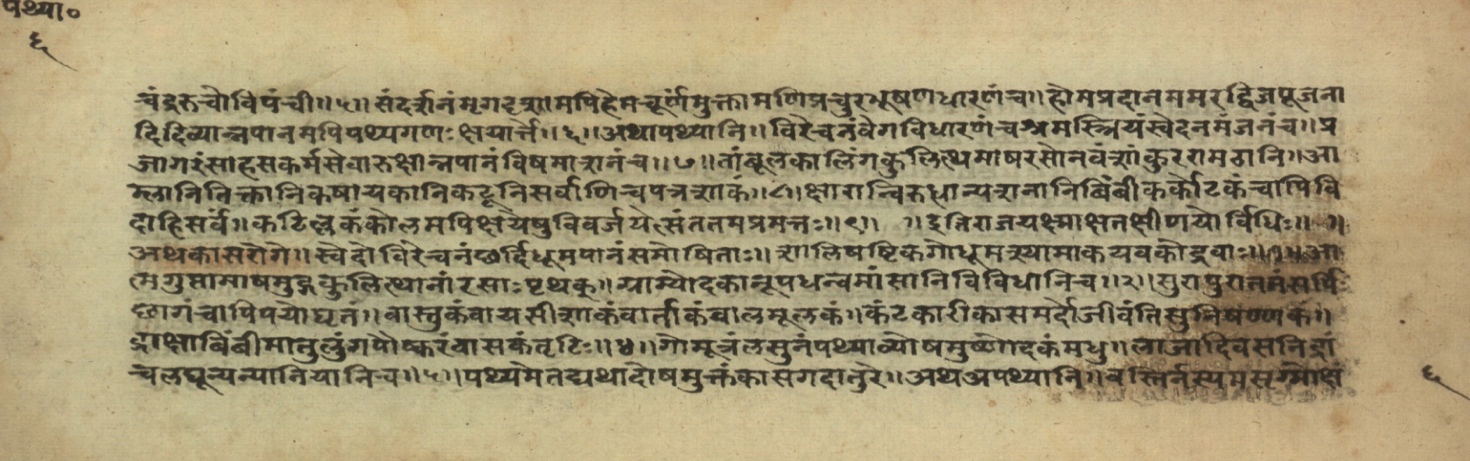 पथ्या०
६
चंद्ररुचौविपंची॥५॥संदर्शनंमृगदृशामपिहेमचूर्णमुक्तामणिप्रचुरभूषणधारणंच॥होमप्रदानममरद्विजपूजना
दिदिव्यान्नपानमपिपथ्यगणःक्षयार्त्ते॥६॥अथापथ्यानि॥विरेचनंवेगविधारणंचश्रमस्त्रियंस्वेदनमंजनंच॥प्र
जागरंसाहसकर्मसेवारुक्षान्नपानंविषमाशनंच॥७॥तांबूलकालिंगकुलित्थमाषरसोनवंशांकुररामठानि॥आ
म्लानितिक्तानिकषायकानिकटूनिसर्वाणिचपत्रशाकं॥८॥क्षारान्विरुद्धान्यशनानिबिंबीकर्कोटकंचापिवि
दाहिसर्वं॥कटिल्लकंकोलमपिक्षयेषुविवर्जयेत्संततमप्रमत्तः॥९॥ ॥इतिराजयक्ष्माक्षतक्षीणयोर्विधिः॥ ॥
अथकासरोगे॥स्वेदोविरेचनंछर्दिधूमपानंसमोषिताः॥शालिषष्टिकगोधूमश्यामाकयवकोद्रवाः॥१॥आ
त्मगुप्तामाषमुद्गकुलित्थानांरसाःपृथक्॥ग्राम्योदकानूपधन्वमांसानिविविधानिच॥२॥सुरापुरातनंसर्पि
छागंचापिपयोघृतं॥वास्तुकंवायसीशाकंवार्ताकंबालमूलकं॥कंटकारीकासमर्दोजीवंतिसुनिषण्णकं॥
द्राक्षाबिंबीमातुलुंगपौष्करंवासकंतृटिः॥४॥गोमूत्रंलसुनंपथ्याव्योषमुष्णोदकंमधु॥लाजादिवसनिद्रां
चलघून्यन्यानियानिच॥५॥पथ्यमेतद्यथादोषमुक्तंकासगदातुरे॥अथअपथ्यानि॥वस्तिर्नस्यमसृग्मोक्ष
६